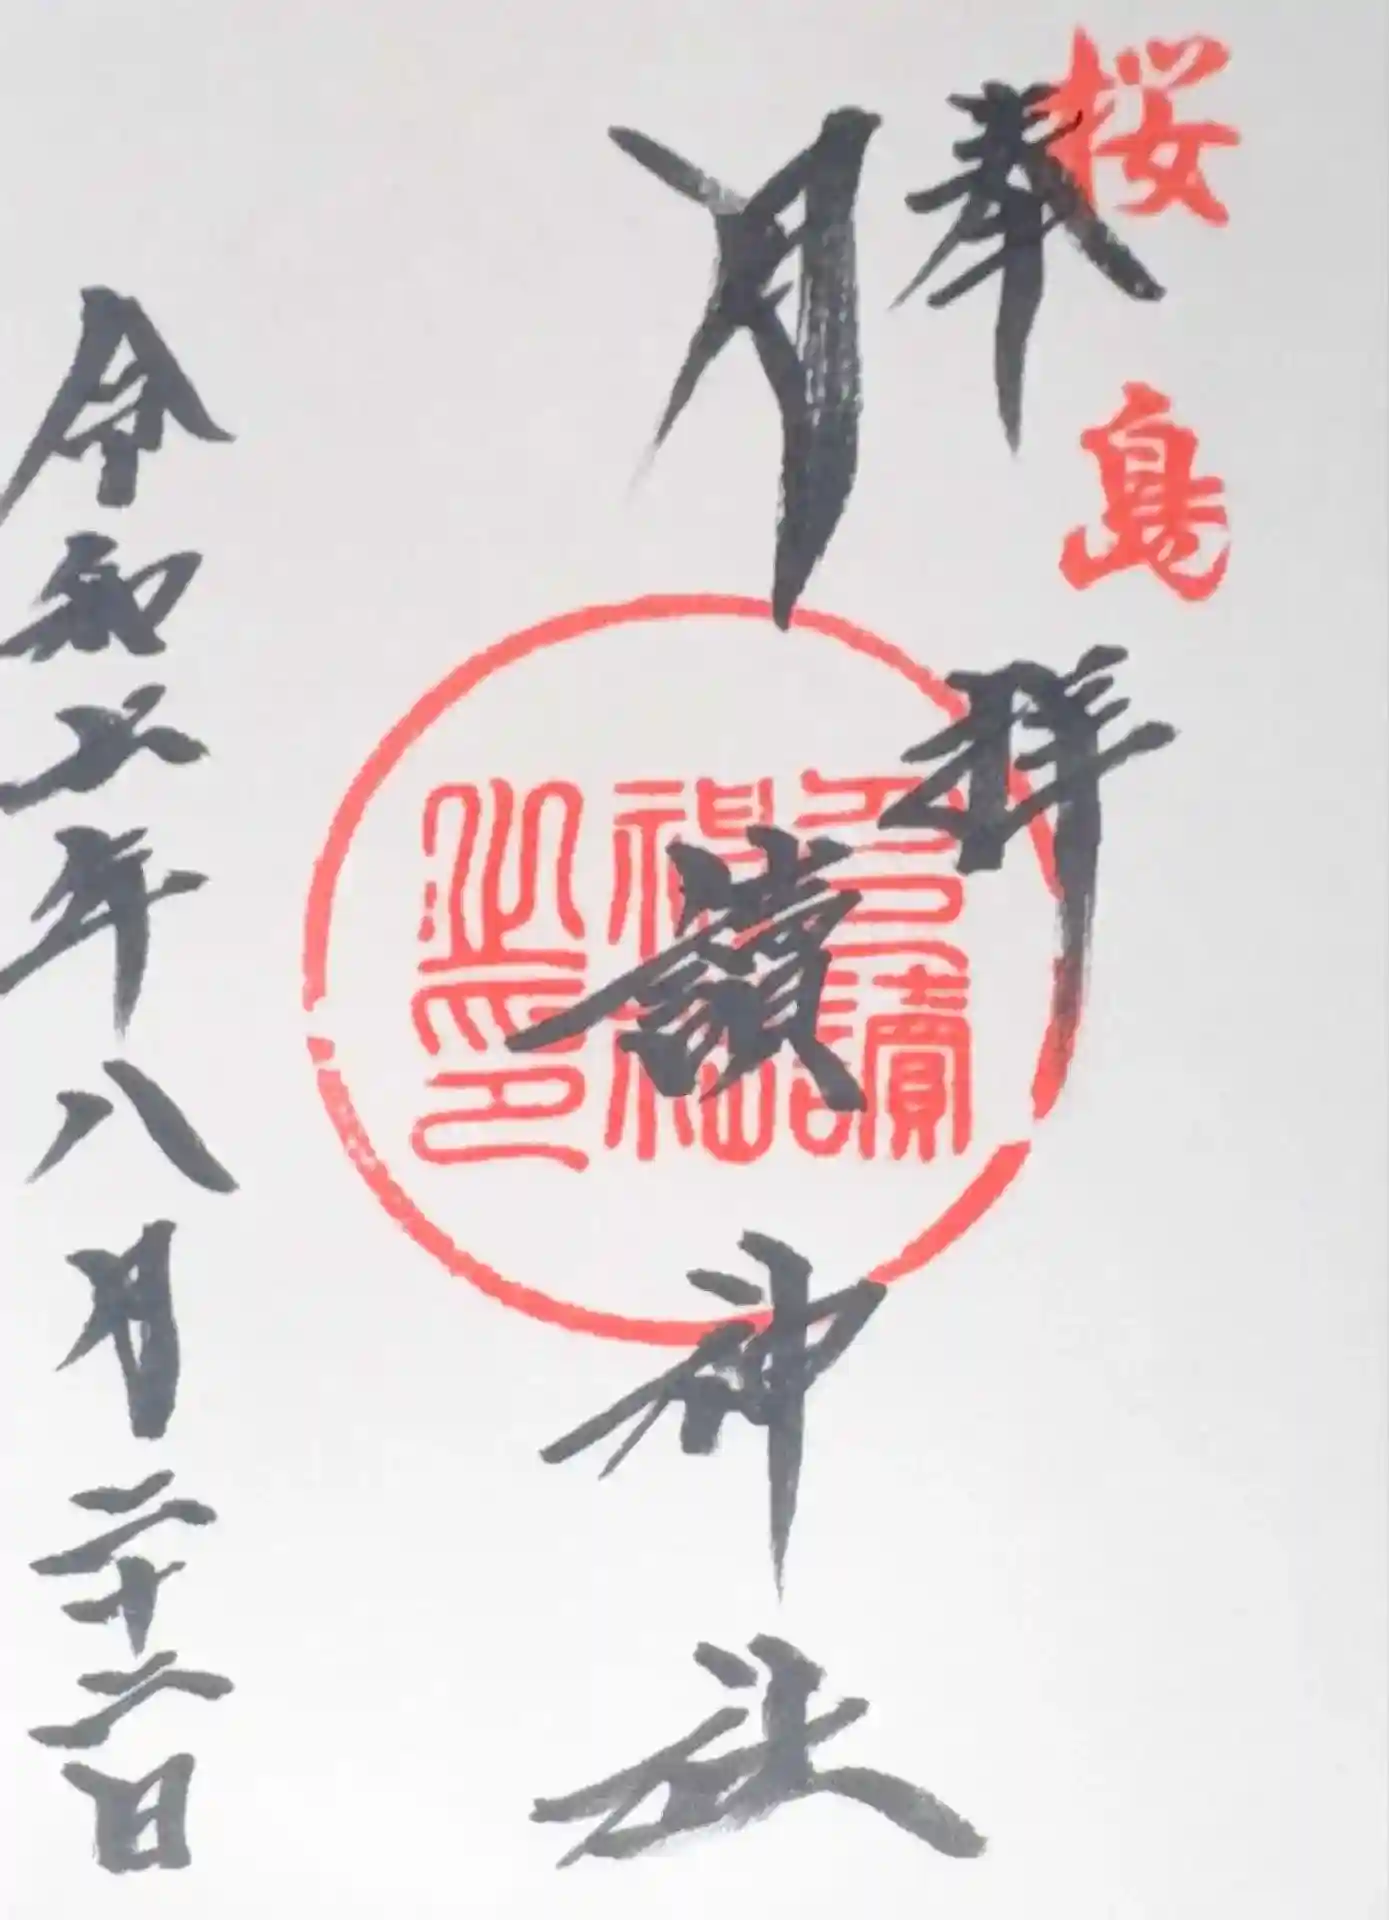 桜島
奉拝
月讀神社
月讀神社之印
令和五年八月二十二日